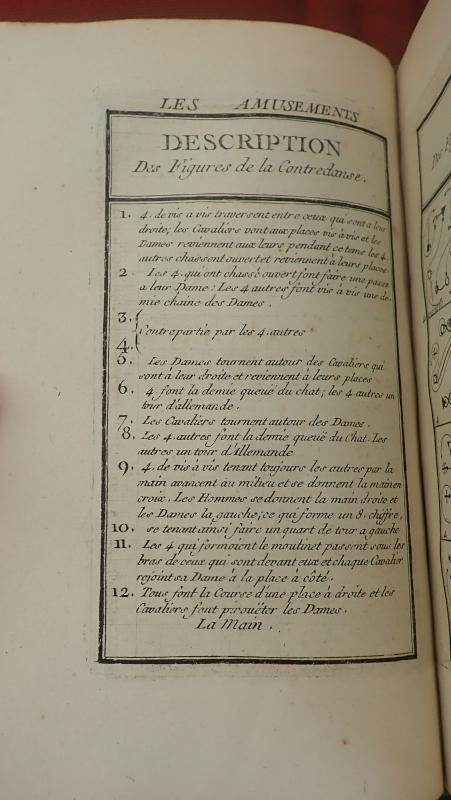 LES AMUSEMENTS
DESCRIPTION
Des Figures de la Contredanse.
1. 4. de vis a vis traversent entre ceux qui sont a leur
droite; les Cavaliers vont aux places vis à vis et les
Dames reviennent aux leurs pendant ce tems les 4.
autres chassent ouvert et reviennent à leurs places.
2 Les 4. qui ont chassé ouvert font faire une passe
a leur Dame: Les 4 autres font vis a vis une de-
mie chaine des Dames.
3.
Contrepartie par les 4. autres
4.
5. Les Dames tournent autour des Cavaliers qui
sont à leur droite et reviennent à leurs places
6. 4. font la demie queuë du chat; les 4 autres un
tour d'allemande.
7. Les Cavaliers tournent autour des Dames.
8. Les 4. autres font la demie queuë du Chat. Les
autres un tour d'Allemande
9. 4. de vis a vis tenant toujours les autres par la
main avancent au milieu et se donnent la main en
croix. Les Hommes se donnent la main droite et
les Dames la gauche; ce qui forme un 8. chiffre,
10. se tenant ainsi faire un quart de tour a gauche
11. Les 4 qui formoient le moulinet passent sous les
bras de ceux qui sont devant eux et chaque Cavalier
rejoint sa Dame à la place à côté.
12. Tous font la Course d'une place à droite et les
Cavaliers font pirouëter les Dames.
La Main.